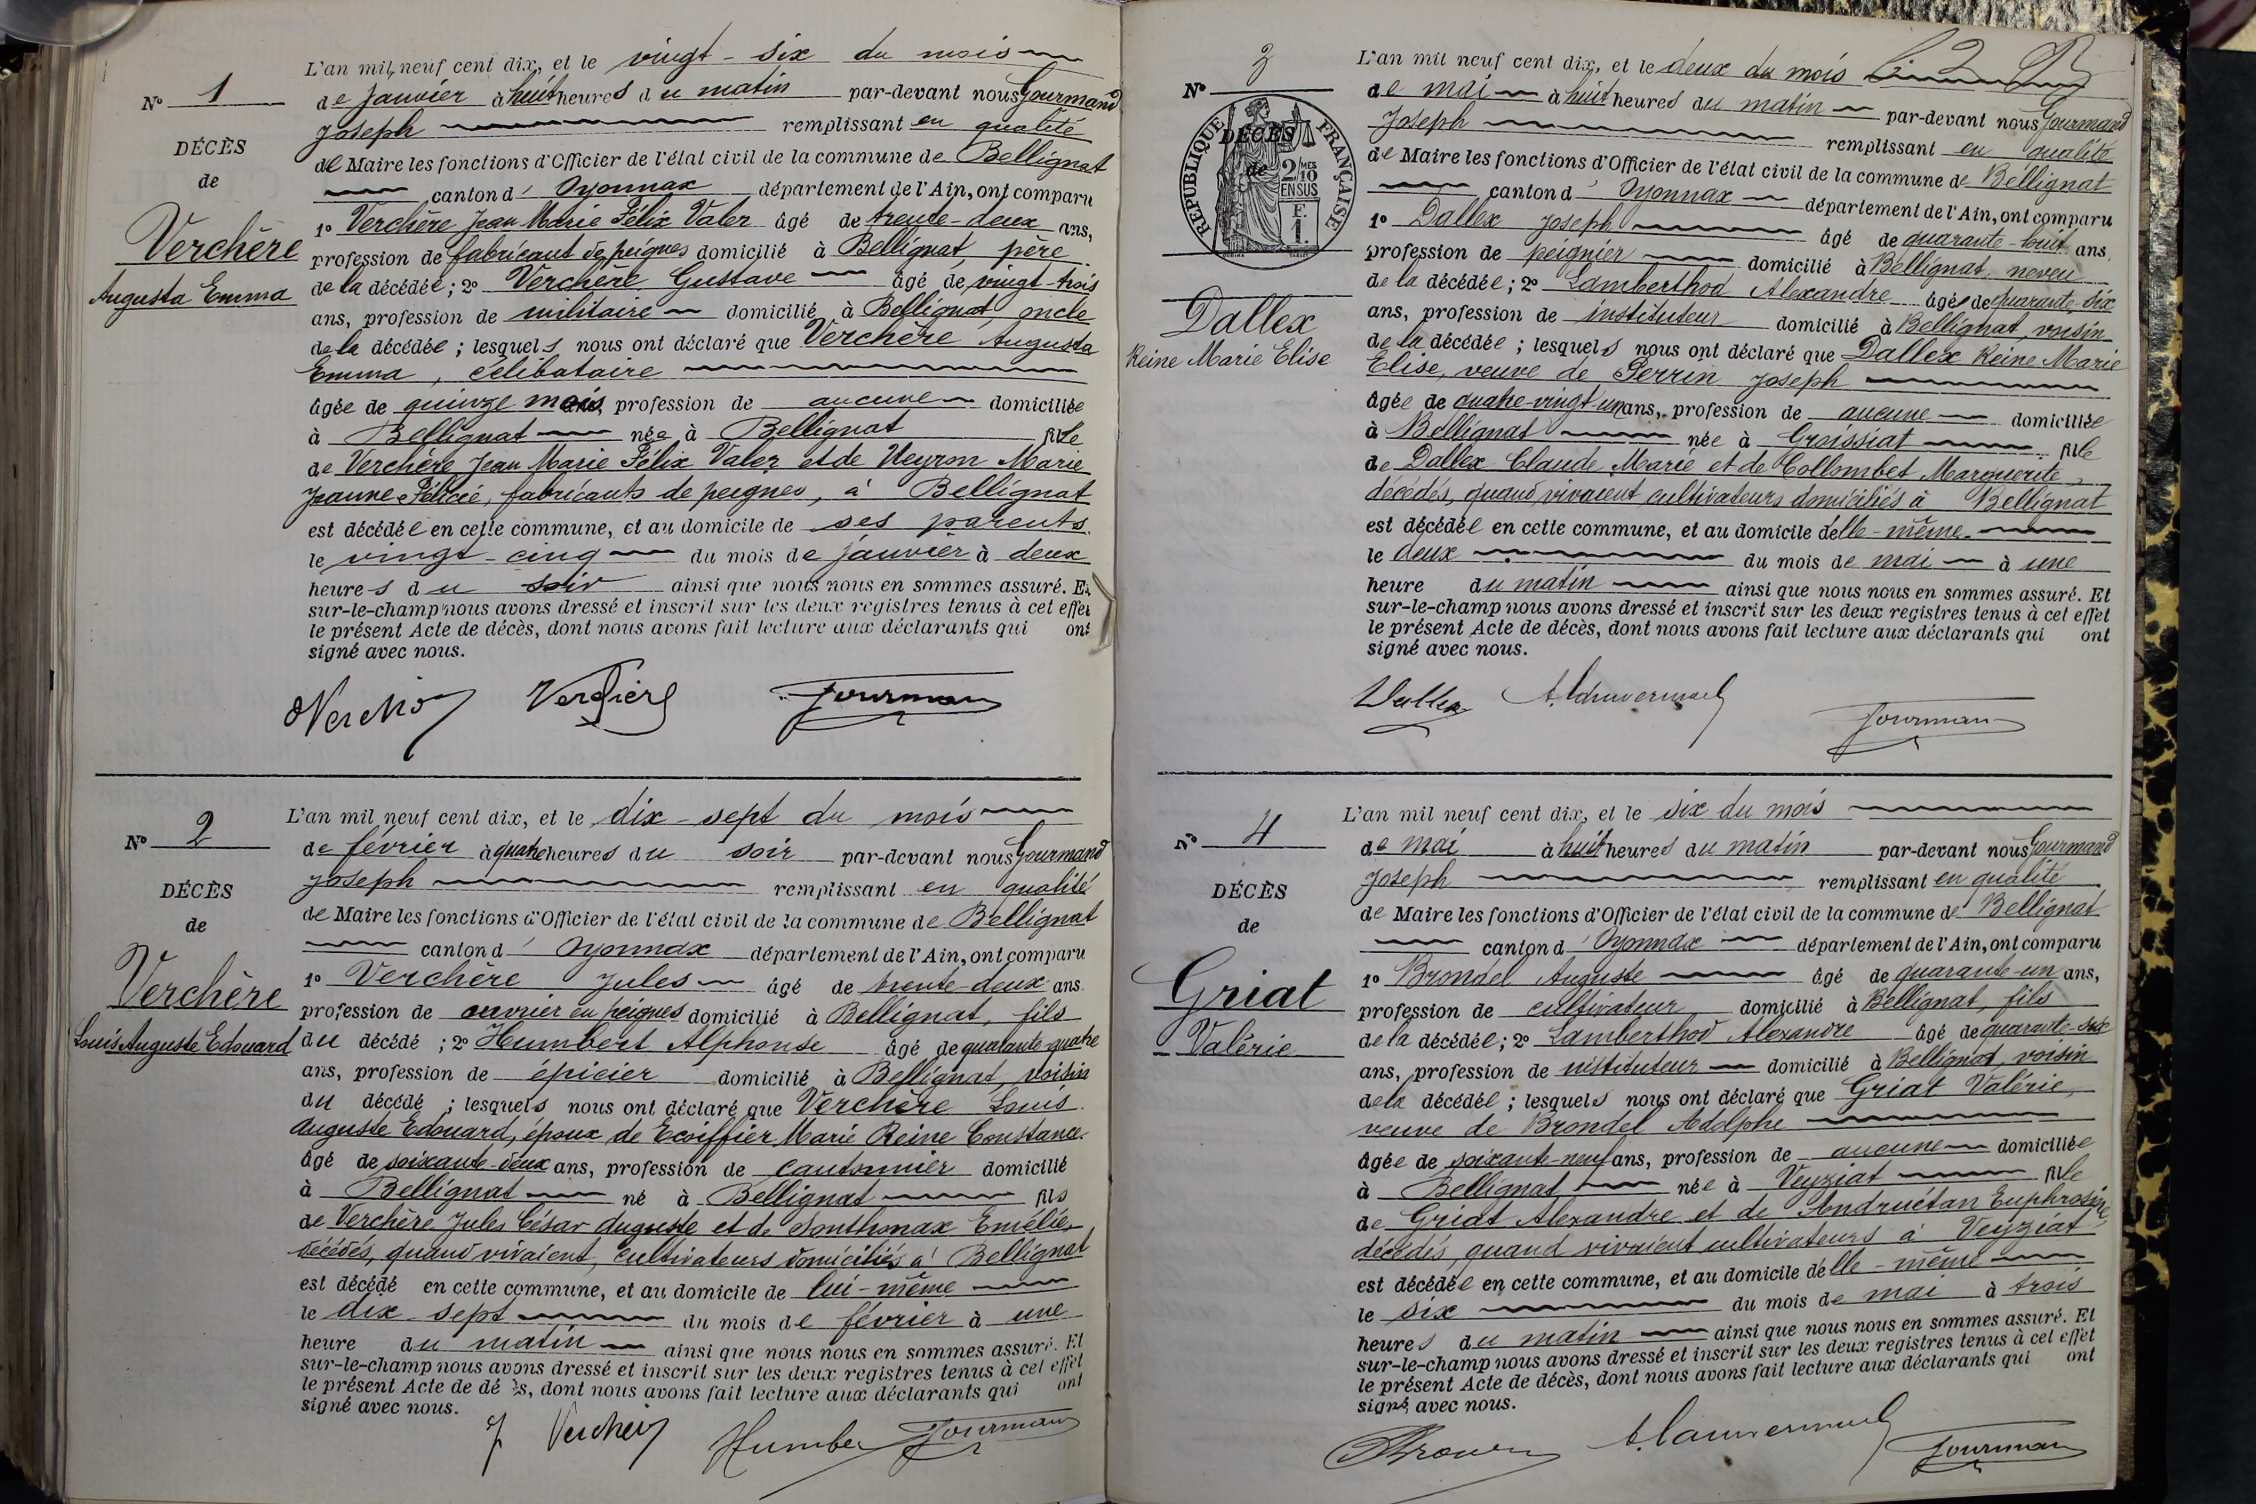 L'an mil neuf cent dix, et le vingt-six du mois
N° 1
de janvier à huit heures du matin par-devant nous Gourmand
Joseph remplissant en qualité
DÉCÈS
de Maire les fonctions d'Officier de l'état civil de la commune de Bellignat
de
canton d'Oyonnax département de l'Ain, ont comparu
1° Verchère Jean Marie Félix Valer âgé de trente-deux ans,
Verchère
profession de fabricant de peignes domicilié à Bellignat, père
Augusta Emma
de la décédée ; 2° Verchère Gustave âgé de vingt-trois
ans, profession de militaire domicilié à Bellignat, oncle
de la décédée ; lesquels nous ont déclaré que Verchère Augusta
Emma, célibataire
âgée de quinze mois, profession de aucune domiciliée
à Bellignat née à Bellignat fille
de Verchère Jean Marie Félix Valer et de Veyron Marie
Jeanne Félicie, fabricants de peignes, à Bellignat
est décédée en cette commune, et au domicile de ses parents
le vingt-cinq du mois de janvier à deux
heures du soir ainsi que nous nous en sommes assuré. Et
sur-le-champ nous avons dressé et inscrit sur les deux registres tenus à cet effet
le présent Acte de décès, dont nous avons fait lecture aux déclarants qui ont
signé avec nous.
Verchère Gourmand
L'an mil neuf cent dix, et le dix-sept du mois
N° 2
de février à quatre heures du soir par-devant nous Gourmand
Joseph remplissant en qualité
DÉCÈS
de Maire les fonctions d'Officier de l'état civil de la commune de Bellignat
de
canton d'Oyonnax département de l'Ain, ont comparu
1° Verchère Jules âgé de trente-deux ans
Verchère
profession de ouvrier en peignes domicilié à Bellignat, fils
Louis Auguste Edouard
du décédé ; 2° Humbert Alphonse âgé de quarante quatre
ans, profession de épicier domicilié à Bellignat, voisin
du décédé ; lesquels nous ont déclaré que Verchère Louis
Auguste Edouard, époux de Ecoiffier Marie Reine Constance
âgé de soixante-deux ans, profession de cantonnier domicilié
à Bellignat né à Bellignat fils
de Verchère Jules César Auguste et de Sonthonax Emélie,
décédés, quand vivaient, cultivateurs domiciliés à Bellignat
est décédé en cette commune, et au domicile de lui-même
le dix-sept du mois de février à une
heure du matin ainsi que nous nous en sommes assuré. Et
sur-le-champ nous avons dressé et inscrit sur les deux registres tenus à cet effet
le présent Acte de décès, dont nous avons fait lecture aux déclarants qui ont
signé avec nous.
J Verchère Humbert Gourmand
L'an mil neuf cent dix, et le deux du mois
N° 3
de mai à huit heures du matin par-devant nous Gourmand
Joseph remplissant en qualité
RÉPUBLIQUE FRANÇAISE
DÉCÈS
de
2/10 EN SUS
F. 1.
de Maire les fonctions d'Officier de l'état civil de la commune de Bellignat
canton d'Oyonnax département de l'Ain, ont comparu
1° Dallex Joseph âgé de quarante-huit ans,
profession de peignier domicilié à Bellignat, neveu
de la décédée ; 2° Lamberthod Alexandre âgé de quarante-six
Dallex
ans, profession de instituteur domicilié à Bellignat, voisin
Reine Marie Elise
de la décédée ; lesquels nous ont déclaré que Dallex Reine Marie
Elise, veuve de Perrin Joseph
âgée de quatre-vingt-un ans, profession de aucune domiciliée
à Bellignat née à Groissiat fille
de Dallex Claude Marie et de Collombet Marguerite,
décédés, quand vivaient cultivateurs domiciliés à Bellignat
est décédée en cette commune, et au domicile d'elle-même
le deux du mois de mai à une
heure du matin ainsi que nous nous en sommes assuré. Et
sur-le-champ nous avons dressé et inscrit sur les deux registres tenus à cet effet
le présent Acte de décès, dont nous avons fait lecture aux déclarants qui ont
signé avec nous.
Dallex Gourmand
L'an mil neuf cent dix, et le six du mois
N° 4
de mai à huit heures du matin par-devant nous Gourmand
Joseph remplissant en qualité
DÉCÈS
de Maire les fonctions d'Officier de l'état civil de la commune de Bellignat
de
canton d'Oyonnax département de l'Ain, ont comparu
1° Brondel Auguste âgé de quarante-un ans,
Griat
profession de cultivateur domicilié à Bellignat, fils
Valérie
de la décédée ; 2° Lamberthod Alexandre âgé de quarante-six
ans, profession de instituteur domicilié à Bellignat, voisin
de la décédée ; lesquels nous ont déclaré que Griat Valérie,
veuve de Brondel Adolphe
âgée de soixante-neuf ans, profession de aucune domiciliée
à Bellignat née à Veyziat fille
de Griat Alexandre et de Andruétan Euphrosine
décédés, quand vivaient cultivateurs à Veyziat
est décédée en cette commune, et au domicile d'elle-même
le six du mois de mai à trois
heures du matin ainsi que nous nous en sommes assuré. Et
sur-le-champ nous avons dressé et inscrit sur les deux registres tenus à cet effet
le présent Acte de décès, dont nous avons fait lecture aux déclarants qui ont
signé avec nous.
Gourmand